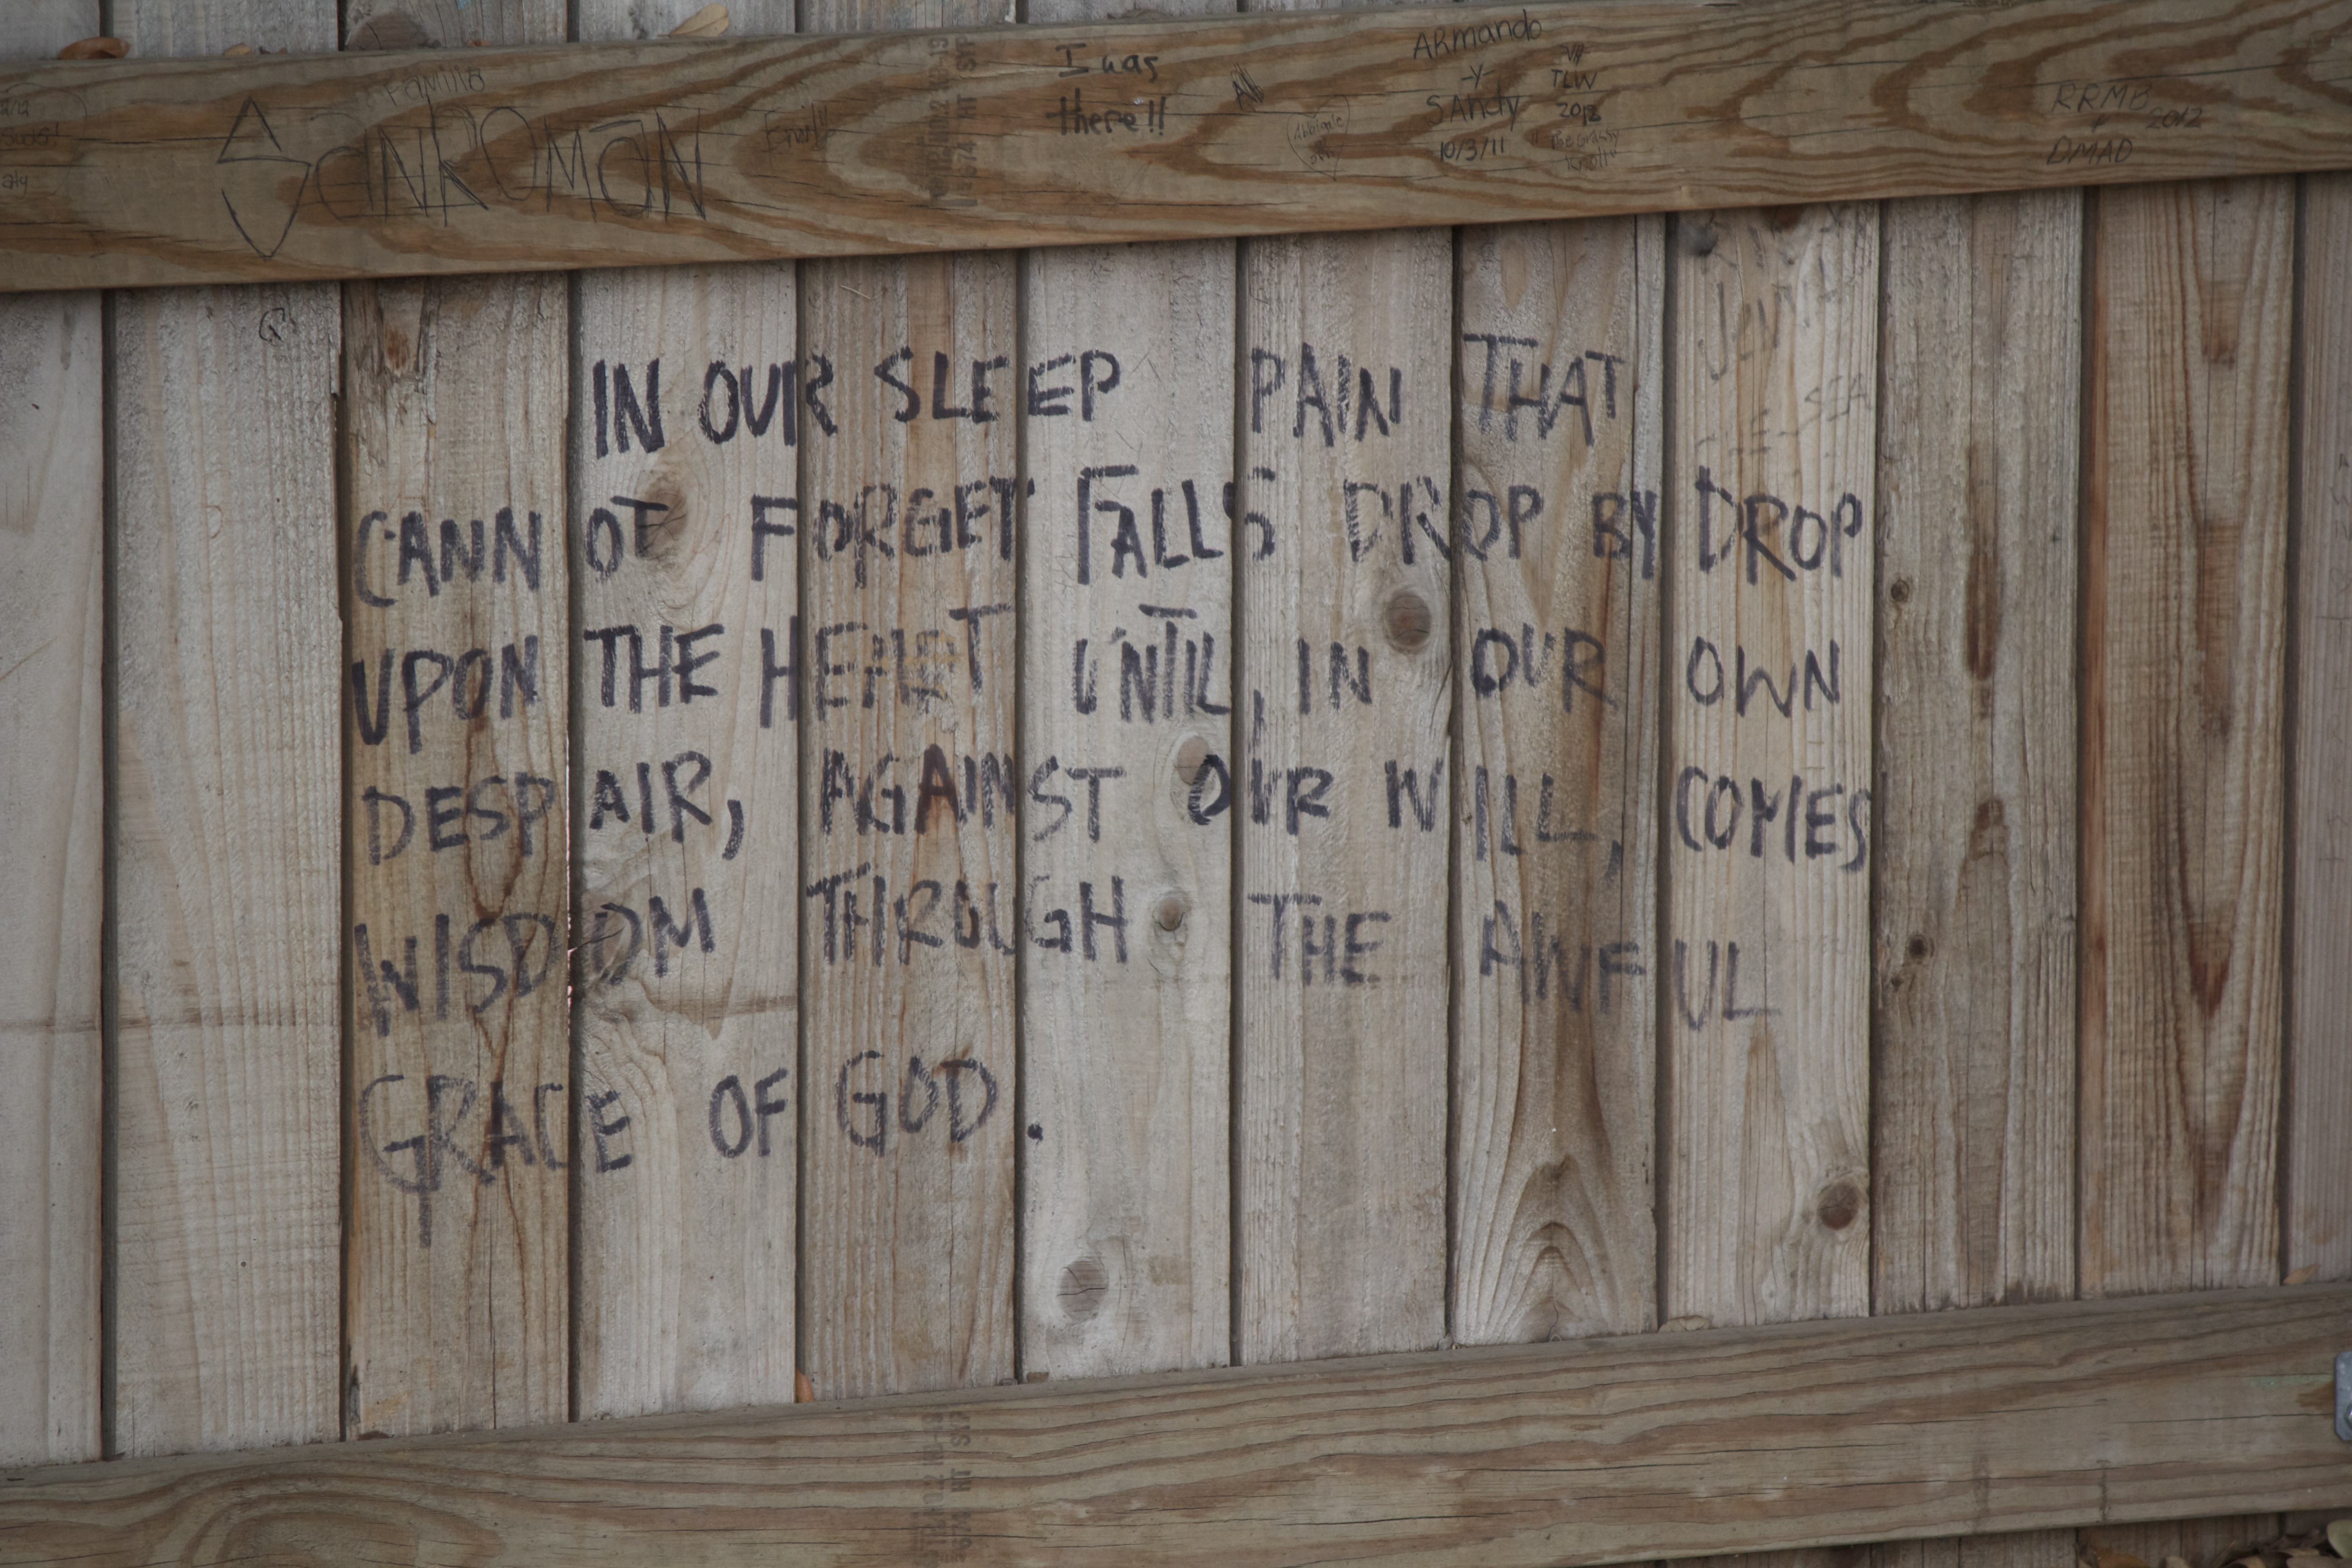 Familia
SANROMAN
I was
there!!
ARmando
-y-
SAndy
10/3/11
TLW
2013
"The Grassy
Knoll"
RRMB
+
DMAD
2012
IN OUR SLEEP PAIN THAT
CANNOT FORGET FALLS DROP BY DROP
UPON THE HEART UNTIL, IN OUR OWN
DESPAIR, AGAINST OUR WILL, COMES
WISDOM THROUGH THE AWFUL
GRACE OF GOD.